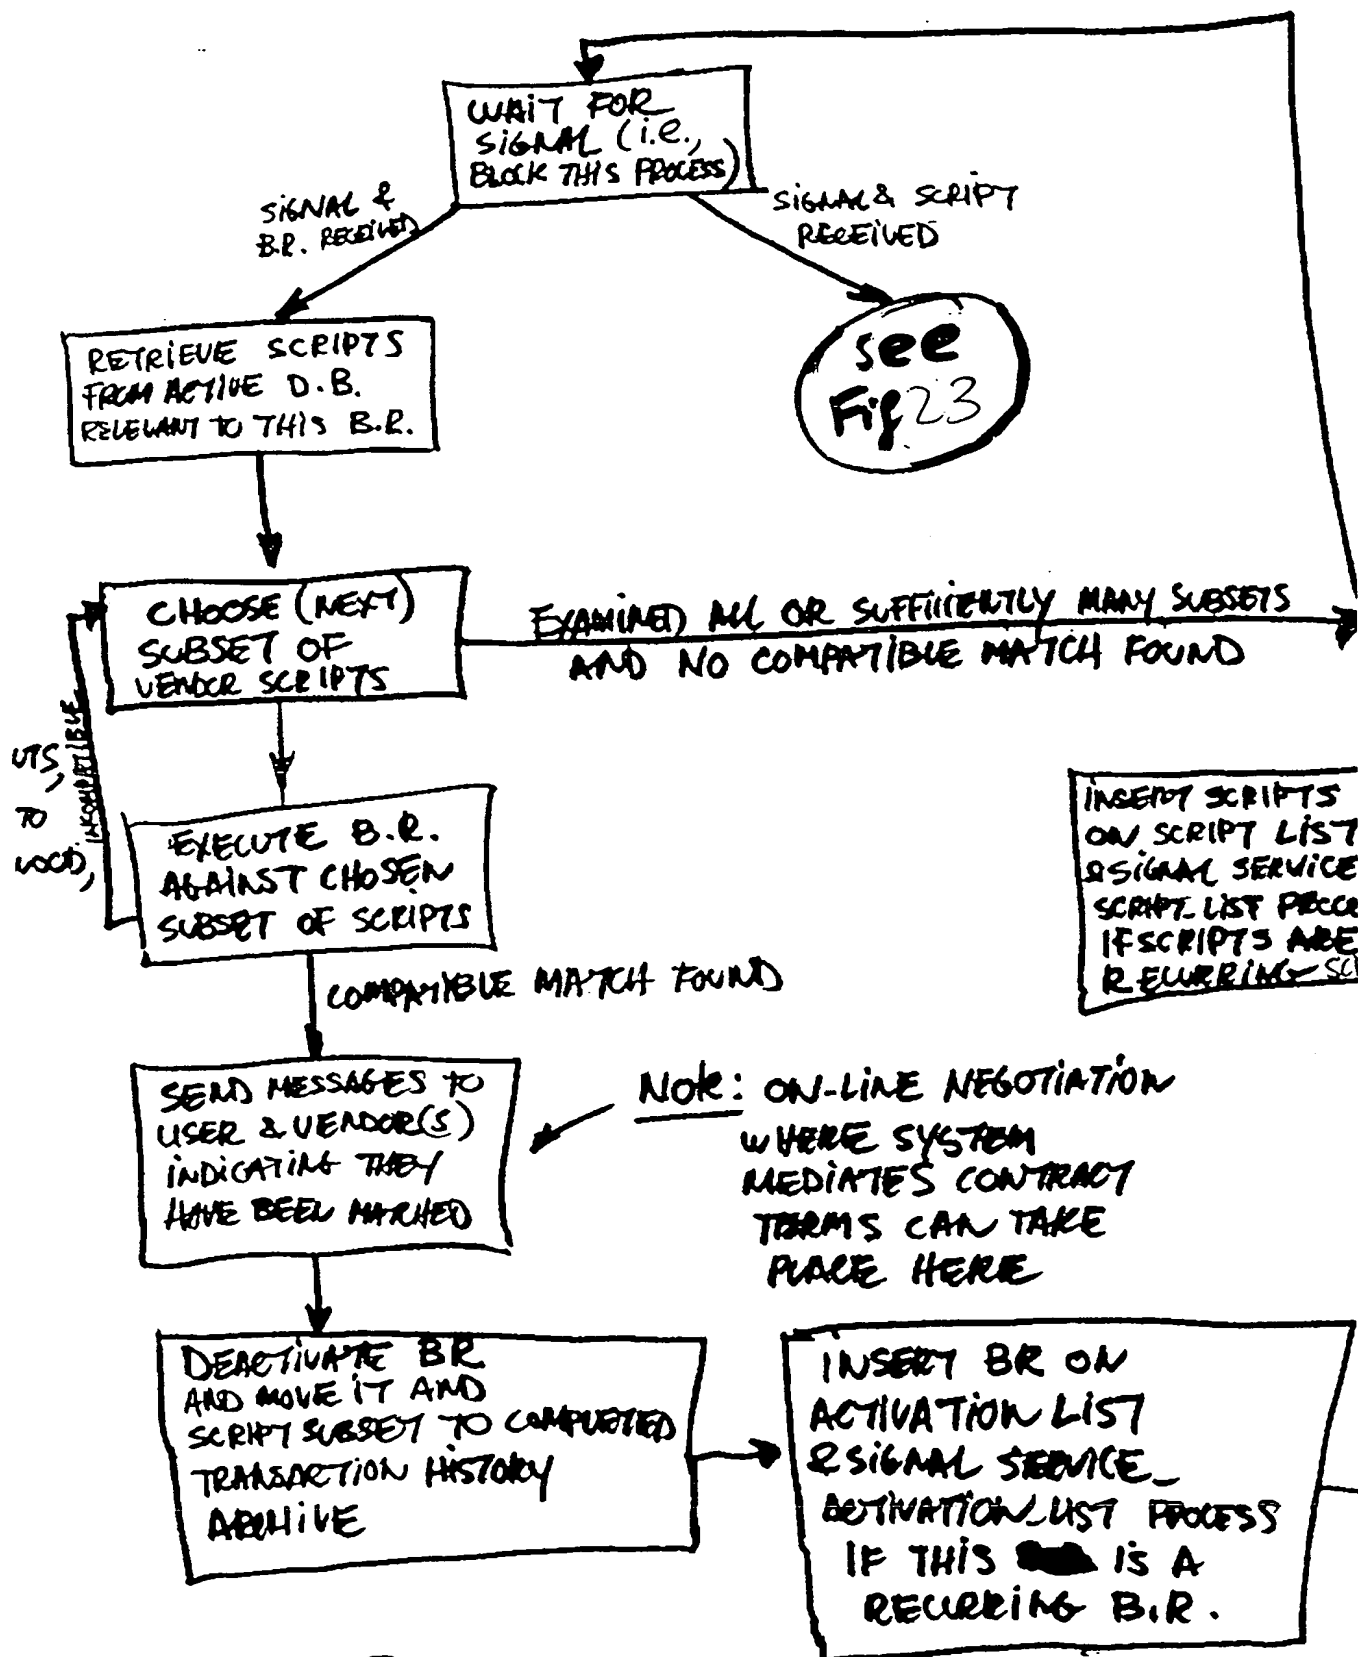 WAIT FOR
SIGNAL (i.e.,
BLOCK THIS PROCESS)
SIGNAL &
B.R. RECEIVED
SIGNAL & SCRIPT
RECEIVED
see
Fig 23
RETRIEVE SCRIPTS
FROM ACTIVE D.B.
RELEVANT TO THIS B.R.
CHOOSE (NEXT)
SUBSET OF
VENDOR SCRIPTS
EXAMINED ALL OR SUFFICIENTLY MANY SUBSETS
AND NO COMPATIBLE MATCH FOUND
INCOMPATIBLE
UTS,
TO
EXECUTE B.R.
AGAINST CHOSEN
SUBSET OF SCRIPTS
INSERT SCRIPTS
ON SCRIPT LIST
& SIGNAL SERVICE
SCRIPT_LIST PROCE
IF SCRIPTS ARE
RECURRING SC
COMPATIBLE MATCH FOUND
SEND MESSAGES TO
USER & VENDOR(S)
INDICATING THEY
HAVE BEEN MATCHED
Note: ON-LINE NEGOTIATION
WHERE SYSTEM
MEDIATES CONTRACT
TERMS CAN TAKE
PLACE HERE
DEACTIVATE BR
AND MOVE IT AND
SCRIPT SUBSET TO COMPLETED
TRANSACTION HISTORY
ARCHIVE
INSERT BR ON
ACTIVATION LIST
& SIGNAL SERVICE_
ACTIVATION_LIST PROCESS
IF THIS IS A
RECURRING B.R.